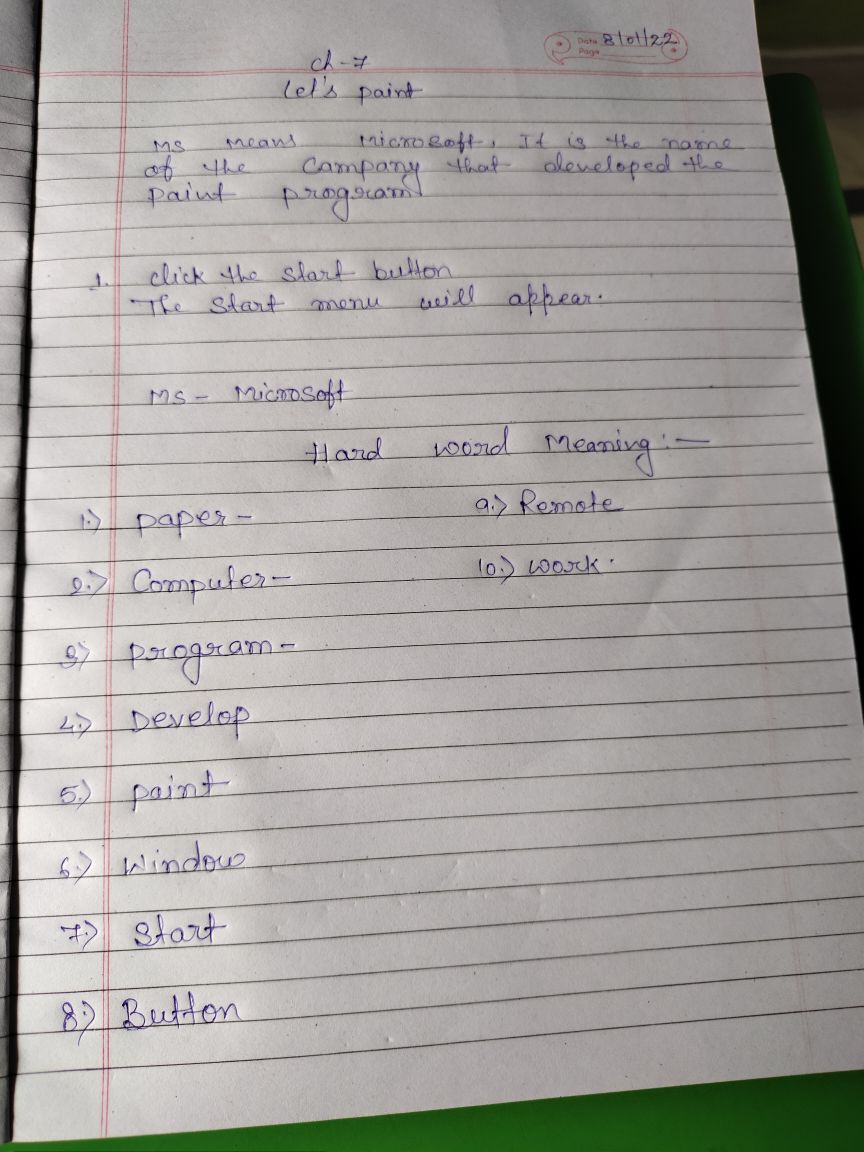 Date 8/01/22
Page
ch-7
Let's paint
MS means Microsoft. It is the name
of the Company that developed the
paint program
1. click the start button
The start menu will appear.
MS - Microsoft
Hard word Meaning :-
1.) paper -
2.) Computer -
3) program -
4.) Develop
5.) paint
6.) Window
7.) Start
8.) Button
9.) Remote
10.) work.